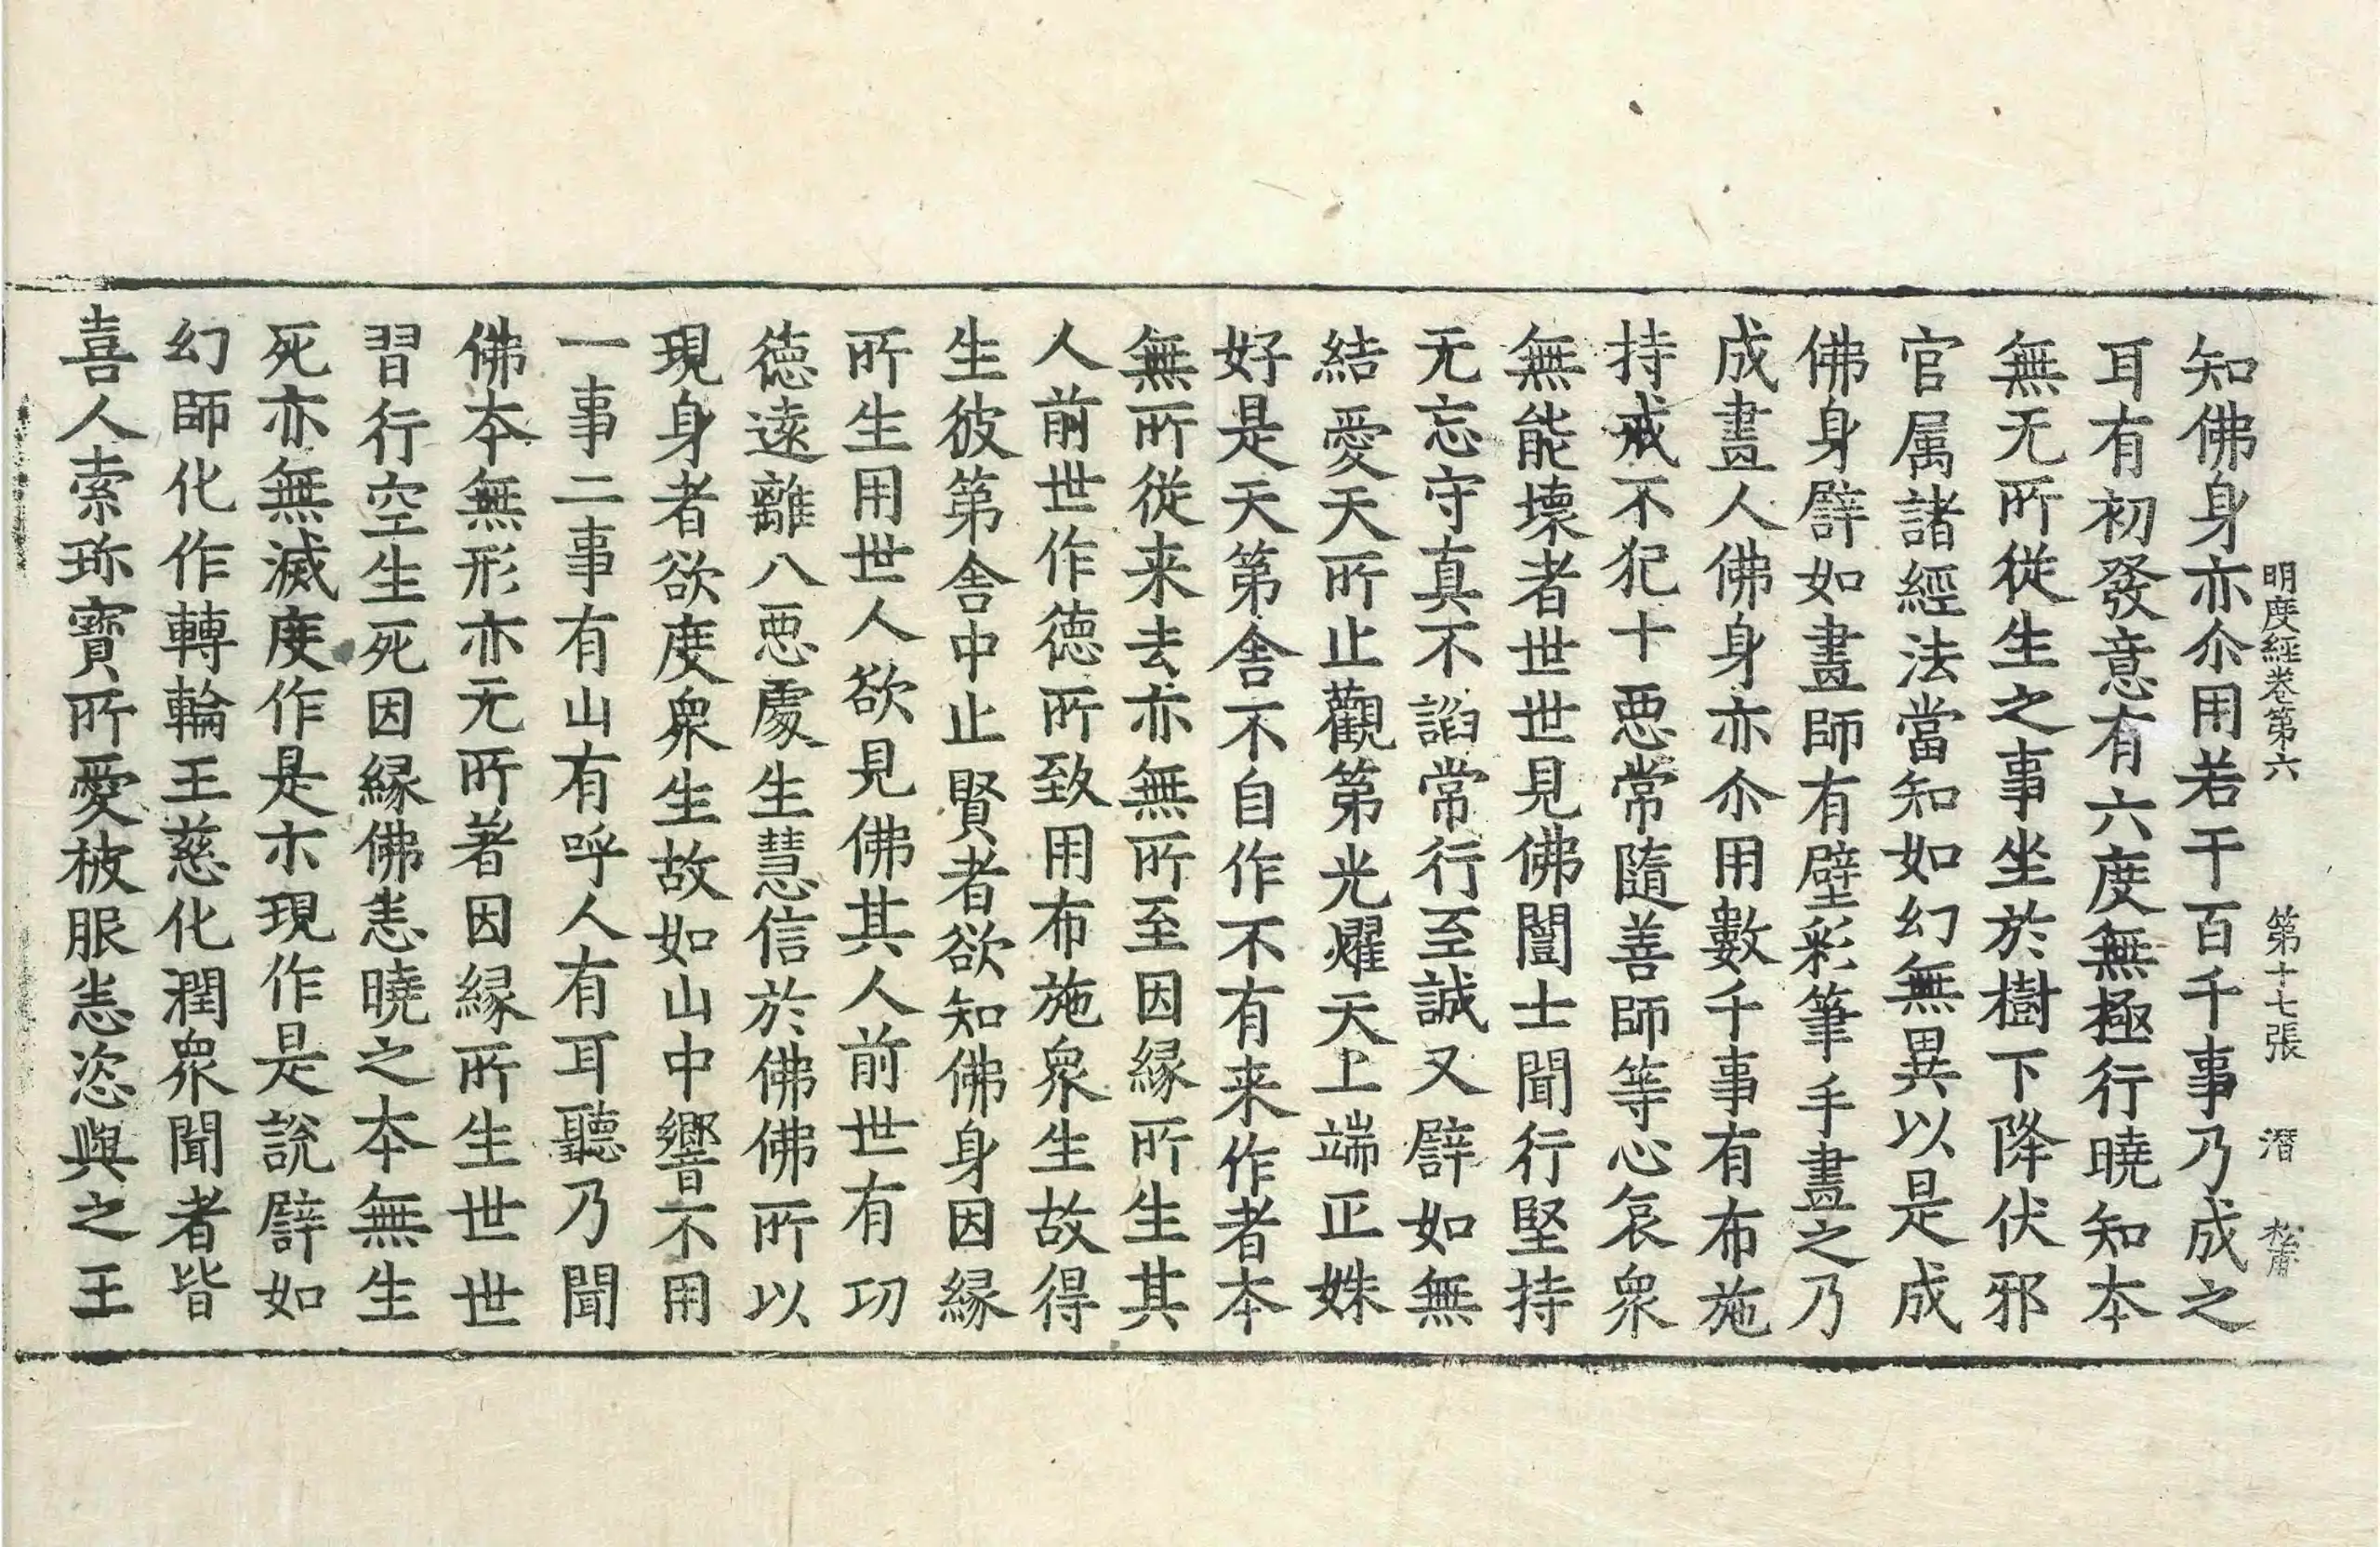 明度經卷第六 第十七張 潛
知佛身亦尒用若干百千事乃成之
耳有初發意有六度無極行曉知本
無无所從生之事坐於樹下降伏邪
官属諸經法當知如幻無異以是成
佛身譬如畫師有壁彩筆手畫之乃
成畫人佛身亦尒用數千事有布施
持戒不犯十惡常隨善師等心哀衆
無能壞者世世見佛闓士聞行堅持
无忘守真不諂常行至誠又譬如無
結愛天所止觀第光燿天上端正姝
好是天第舍不自作不有来作者本
無所從来去亦無所至因緣所生其
人前世作德所致用布施衆生故得
生彼第舍中止賢者欲知佛身因緣
所生用世人欲見佛其人前世有功
德遠離八惡處生慧信於佛佛所以
現身者欲度衆生故如山中響不用
一事二事有山有呼人有耳聽乃聞
佛本無形亦无所著因緣所生世世
習行空生死因緣佛悉曉之本無生
死亦無滅度作是示現作是說譬如
幻師化作轉輪王慈化潤衆聞者皆
喜人索珎寶所愛被服悉恣與之王